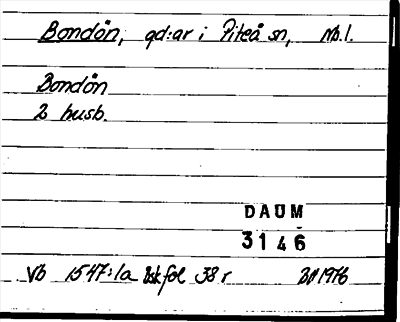 Bondön, gd:ar i Piteå sn, Nb.l.
Bondön
2 husb.
DAUM
3146
Vb 1547:1a Bskfol 38 r BH 1976